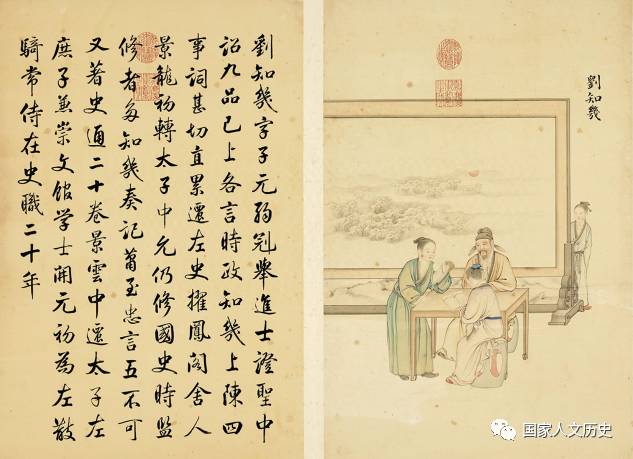 劉知幾
劉知幾字子元弱冠舉進士證聖中
詔九品已上各言時政知幾上陳四
事詞甚切直累遷左史擢鳳閣舍人
景龍初轉太子中允仍修國史時監
修者多知幾奏記蕭至忠言五不可
又著史通二十卷景雲中遷太子左
庶子兼崇文館学士開元初為左散
騎常侍在史職二十年
国家人文历史